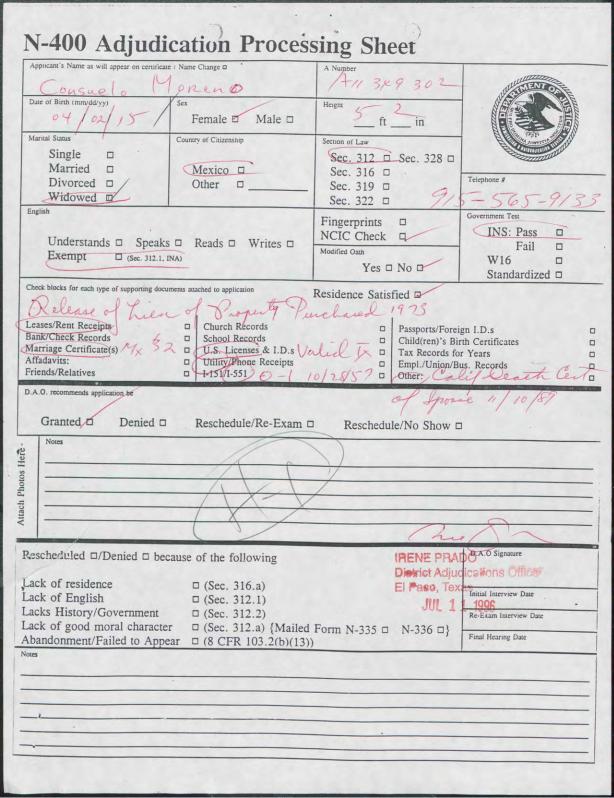 N-400 Adjudication Processing Sheet
Applicant's Name as will appear on certificate : Name Change □
Consuelo Moreno
A Number
A11 349 302
Date of Birth (mm/dd/yy)
04/02/15
Sex
Female □ Male □
Height
5 ft 2 in
Marital Status
Single □
Married □
Divorced □
Widowed □
Country of Citizenship
Mexico □
Other □
Section of Law
Sec. 312 □ Sec. 328 □
Sec. 316 □
Sec. 319 □
Sec. 322 □
DEPARTMENT OF JUSTICE
Telephone #
915-565-9133
English
Understands □ Speaks □ Reads □ Writes □
Exempt □ (Sec. 312.1, INA)
Fingerprints □
NCIC Check □
Modified Oath
Yes □ No □
Government Test
INS: Pass □
Fail □
W16 □
Standardized □
Check blocks for each type of supporting documents attached to application
Residence Satisfied □
Release of Lien of Property Purchased 1973
Leases/Rent Receipts □
Bank/Check Records □
Marriage Certificate(s) Mx 32 □
Affadavits: □
Friends/Relatives □
Church Records □
School Records □
U.S. Licenses & I.D.s Valid Tx □
Utility/Phone Receipts □
I-151/I-551 □ 0-1 10/28/57
Passports/Foreign I.D.s □
Child(ren)'s Birth Certificates □
Tax Records for Years □
Empl./Union/Bus. Records □
Other: Calif Death Cert □
of Spouse 11/10/89
D.A.O. recommends application be
Granted □ Denied □ Reschedule/Re-Exam □ Reschedule/No Show □
Attach Photos Here -
Notes
Rescheduled □/Denied □ because of the following
Lack of residence □ (Sec. 316.a)
Lack of English □ (Sec. 312.1)
Lacks History/Government □ (Sec. 312.2)
Lack of good moral character □ (Sec. 312.a) {Mailed Form N-335 □ N-336 □}
Abandonment/Failed to Appear □ (8 CFR 103.2(b)(13))
IRENE PRADO
District Adjudications Officer
El Paso, Texas
JUL 11 1996
D.A.O Signature
Initial Interview Date
Re-Exam Interview Date
Final Hearing Date
Notes